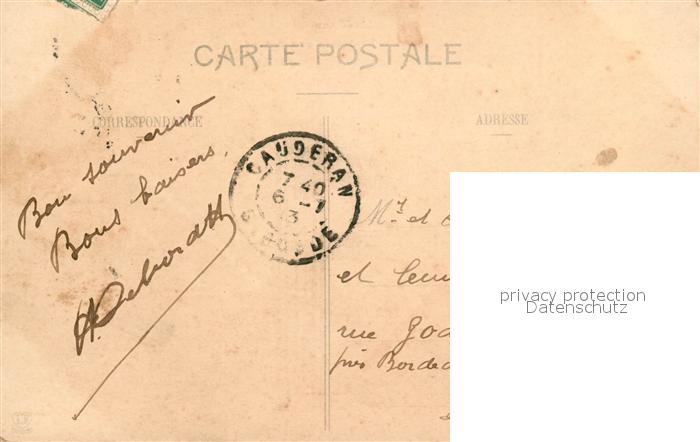 CARTE POSTALE
CORRESPONDANCE
ADRESSE
Bon souvenir
Bons baisers.
CAUDERAN
7 40
6 -
13
GIRONDE
Mr et
et leur
rue God
près Bordea
privacy protection
Datenschutz